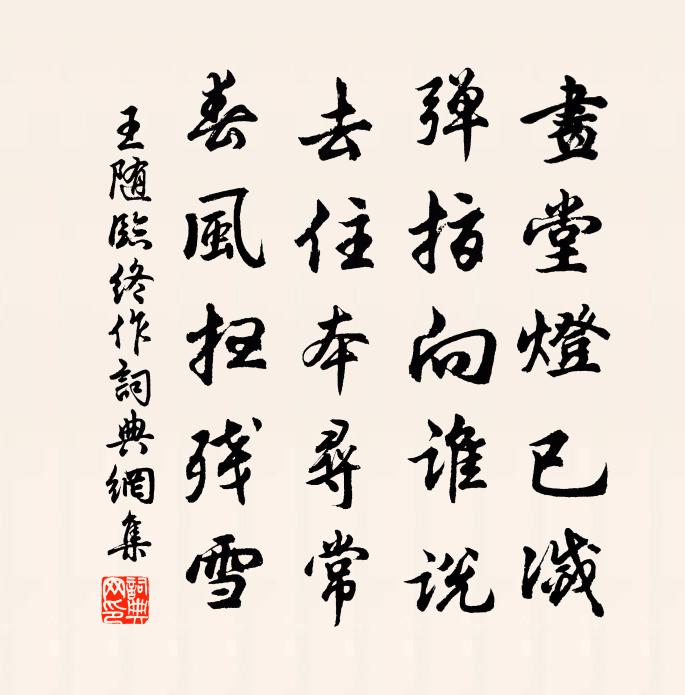 畫堂燈已滅
弹指向谁說
去住本尋常
春風扫残雪
王随臨终作詞典網集
詞典网印